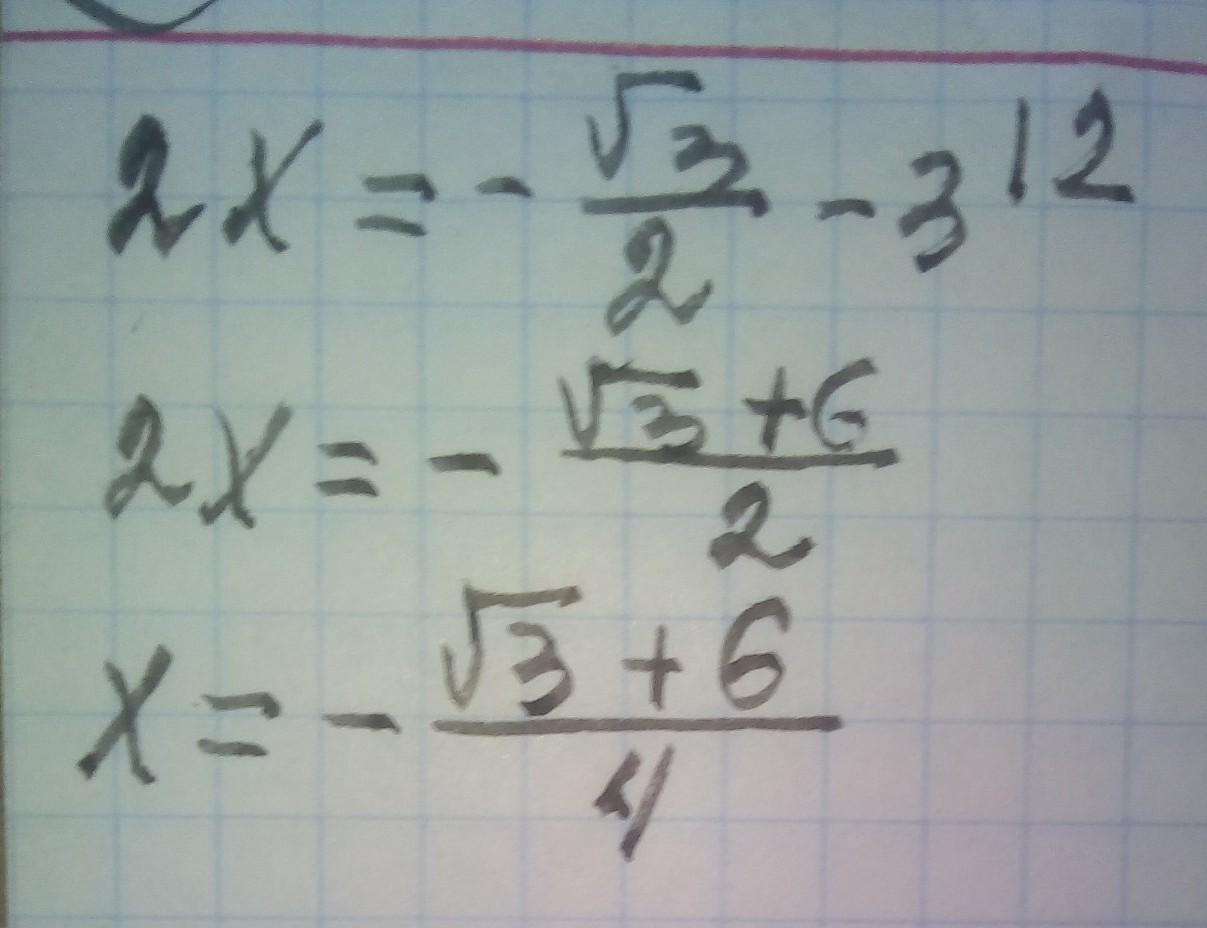 2x = - √3/2 - 3 |2
2x = - (√3 + 6)/2
x = - (√3 + 6)/4